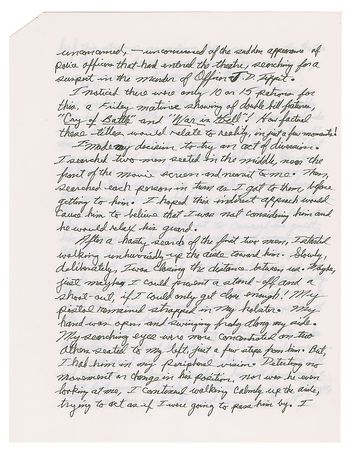 unconcerned, — unconcerned of the sudden appearance of
police officers that had entered the theatre, searching for a
suspect in the murder of Officer J. D. Tippit.
I noticed there were only 10 or 15 persons for
this, a Friday matinee showing of double bill features,
"Cry of Battle" and "War is Hell"! How factual
these titles would relate to reality, in just a few moments!
I made my decision to try an act of diversion.
I searched two men seated in the middle, near the
front of the movie screen and nearest to me. Then,
searched each person in turn as I got to them, before
getting to him. I hoped this indirect approach would
cause him to believe that I was not considering him and
he would relax his guard.
After a hasty search of the first two men, I started
walking unhurriedly up the aisle toward him. Slowly,
deliberately, I was closing the distance between us. Maybe,
just maybe, I could prevent a stand-off and a
shoot-out, if I could only get close enough! My
pistol remained strapped in my holster. My
hand was open and swinging freely along my side.
My searching eyes were more concentrated on two
others seated to my left, just a few steps from him. But,
I had him in my peripheral vision. Detecting no
movement or change in his position, nor was he even
looking at me, I continued walking calmly up the aisle,
trying to act as if I were going to pass him by. I